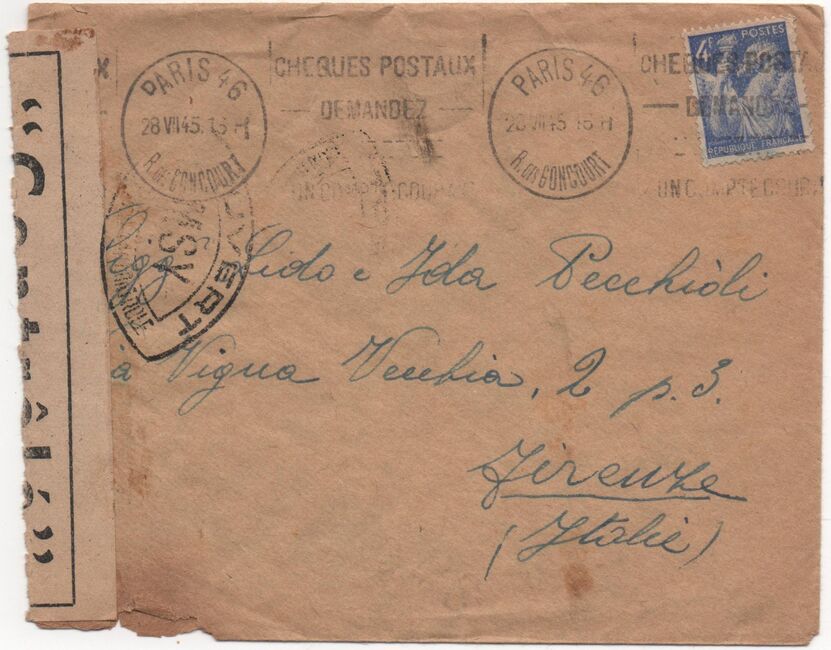 PARIS 46
28 VII 45. 15 H
R. des GONCOURT
CHEQUES POSTAUX
DEMANDEZ
UN COMPTE COURA
PARIS 46
28 VII 45 15 H
R. des GONCOURT
CHEQUES POSTA
DEMANDE
UN COMPTE COURA
4F
POSTES
REPUBLIQUE FRANÇAISE
"Contrôlé"
OUVERT
Sigg. Lido e Ida Pecchioli
Via Vigna Vecchia, 2 p. 3.
Firenze
(Italie)